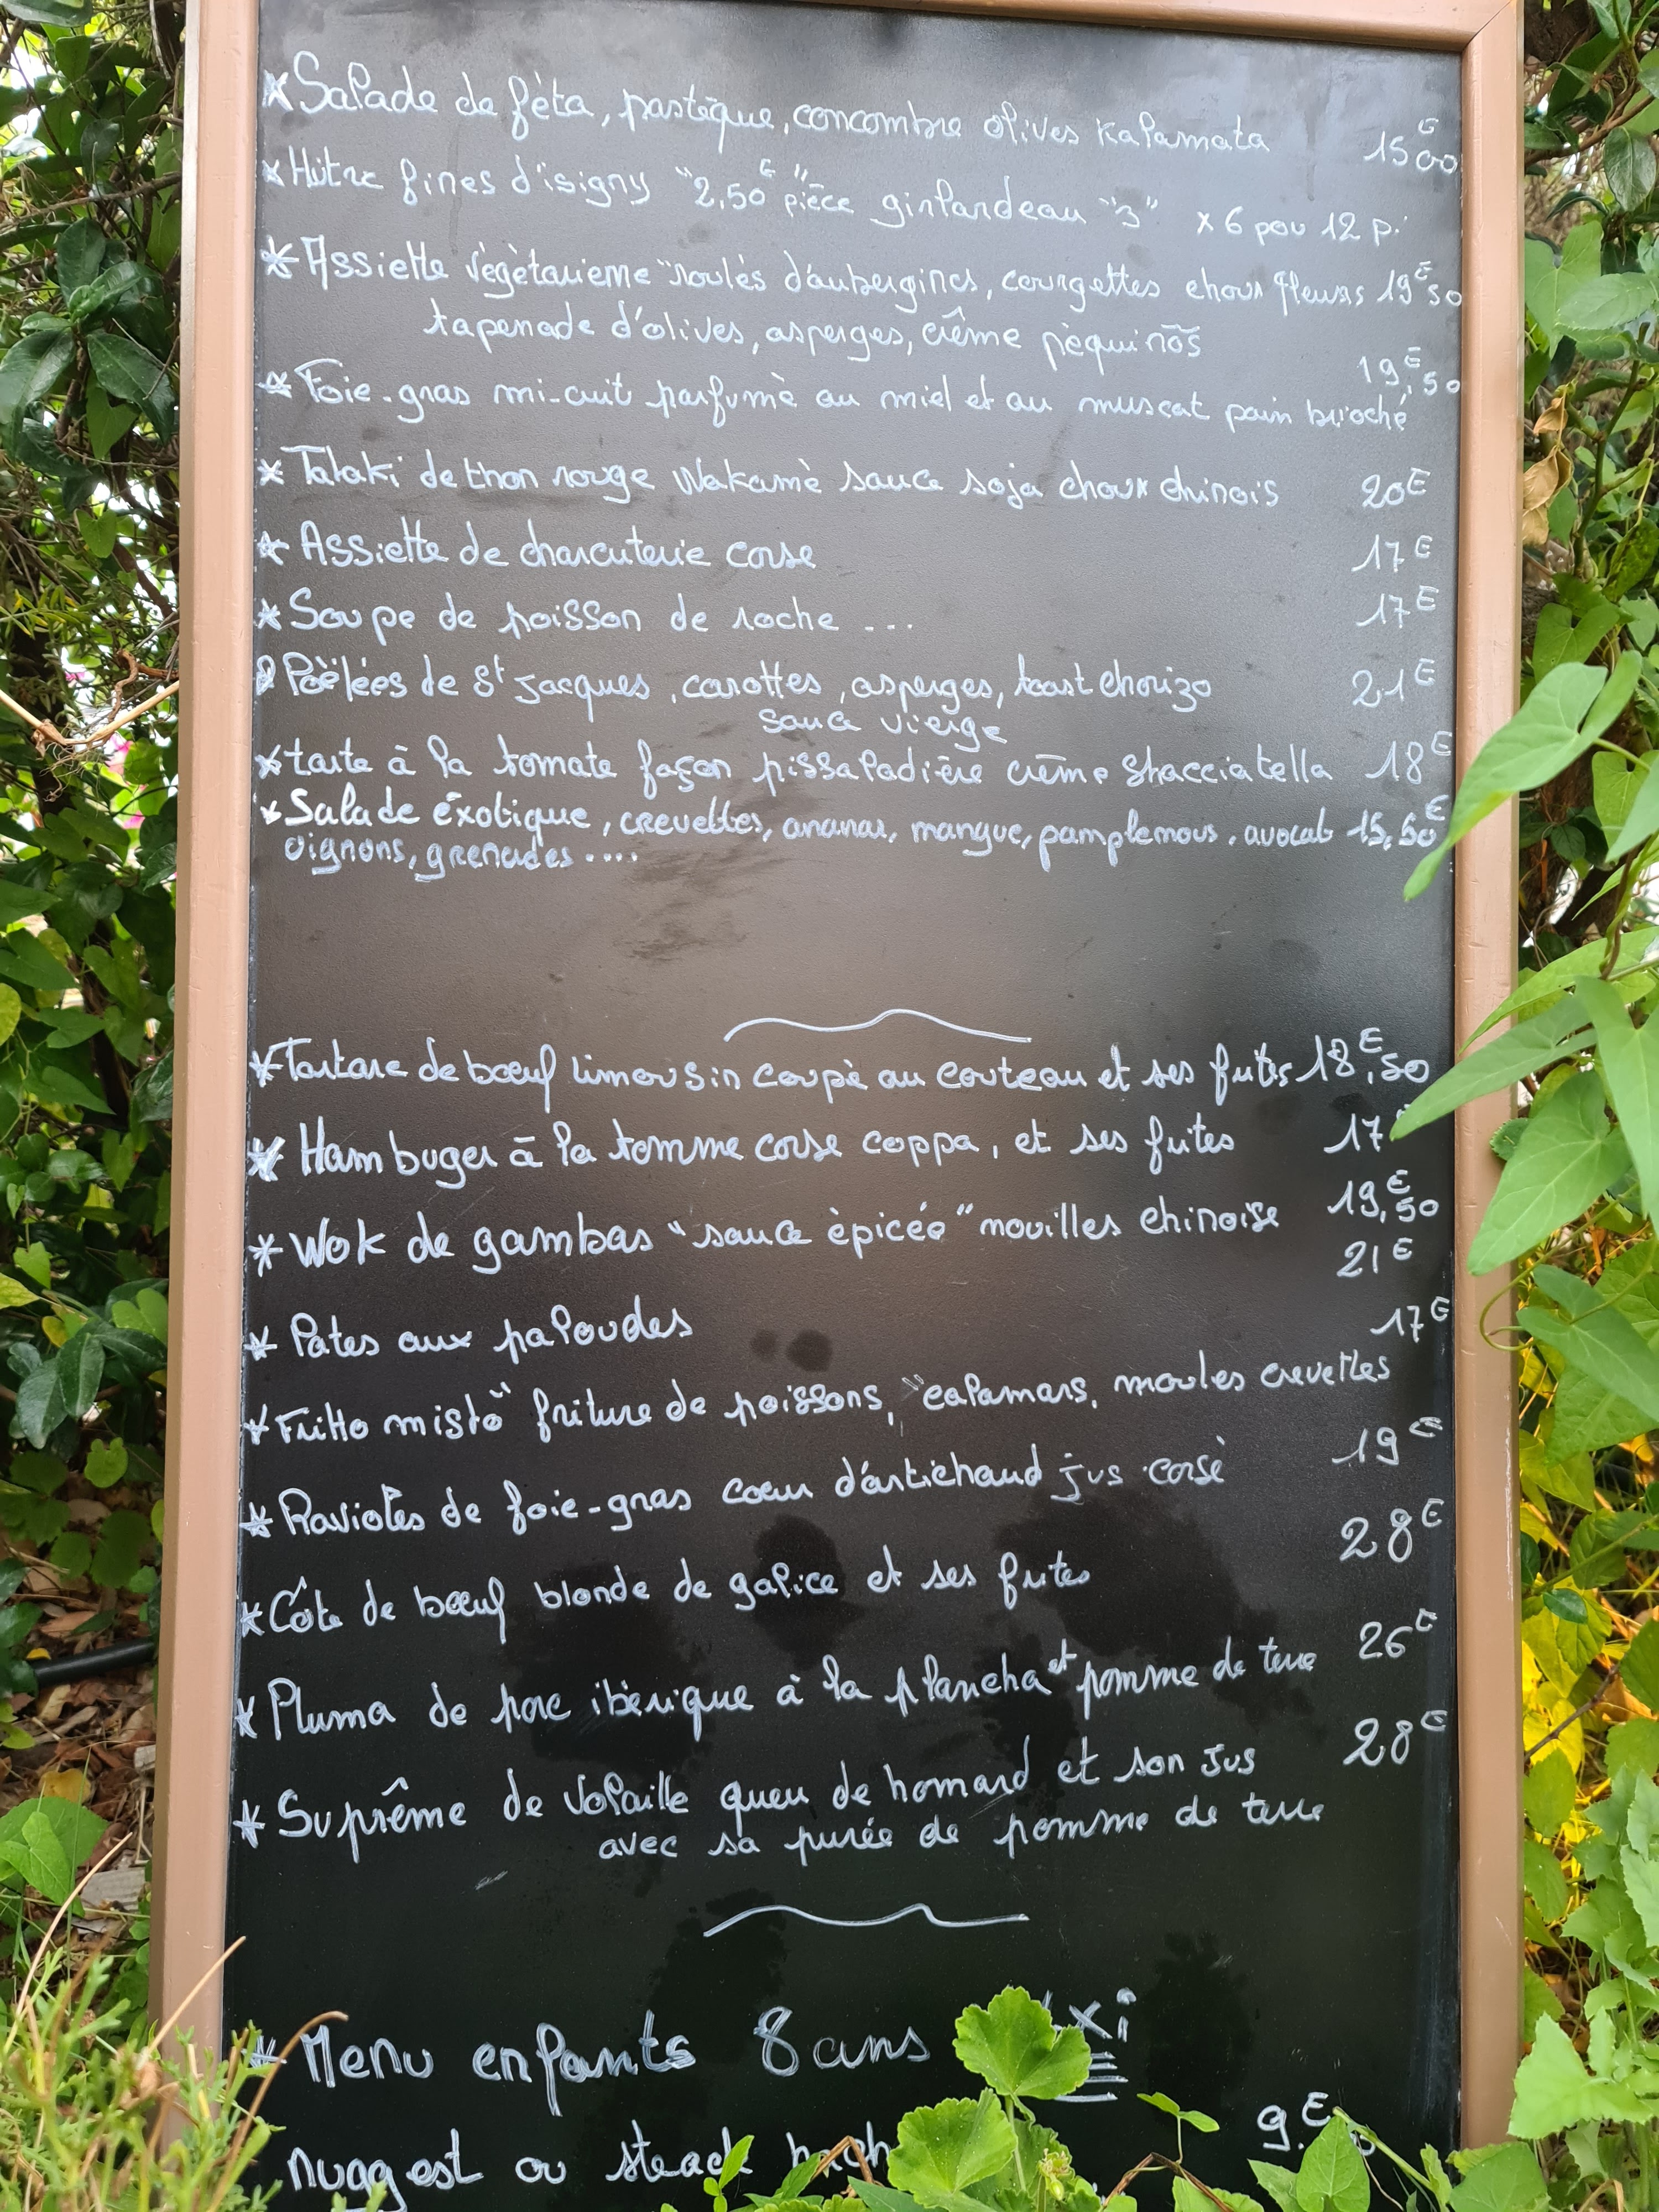 *Salade de fèta, pastèque, concombre olives Kalamata 15€00
*Hûtre fines d'isigny "2,50€" pièce girlardeau "3" x 6 pou 12 p.
*Assiette végètarieme "roulés d'aubergines, courgettes choux fleurs 19€50
tapenade d'olives, asperges, crême pèquinõs
*Foie-gras mi-cuit parfumè au miel et au muscat pain brioché 19€,50
*Tataki de thon rouge Wakamè sauce soja choux chinois 20€
*Assiette de charcuterie corse 17€
*Soupe de poisson de roche ... 17€
Poëlées de St Jacques, carottes, asperges, toast chorizo 21€
sauce vierge
*tarte à la tomate façon pissaladière crème stracciatella 18€
*Salade éxotique, crevettes, ananas, mangue, pamplemous, avocat 15,50€
oignons, grenades ....
*Tartare de bœuf limousin coupè au couteau et ses frites 18€,50
*Hambuger à la tomme corse coppa, et ses frites 17
*Wok de gambas "sauce èpicée" nouilles chinoise 19€,50
21€
*Pates aux paloudes
17€
*Fritto misto" friture de poissons, "calamars, moules crevettes
19€
*Ravioles de foie-gras cœur d'artichaud jus corsè
28€
*Côte de bœuf blonde de galice et ses frites
26€
*Pluma de porc ibèrique à la plancha et pomme de terre
28€
*Suprême de volaille queu de homard et son jus
avec sa purée de pomme de terre
*Menu enfants 8 ans xi
9.€
nuggest ou steack hach